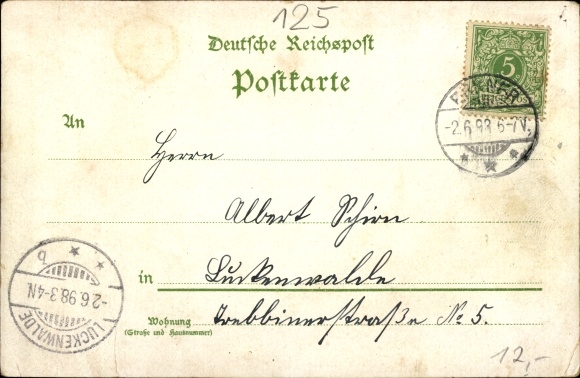 125
Deutsche Reichspost
Postkarte
5
-2.6.98.6-7V.
An
Herrn
Albert Schirn
in Luckenwalde
Wohnung
(Straße und Hausnummer)
Trebbinerstraße No 5.
LUCKENWALDE
-2.6.98.3-4N.
b
12,-